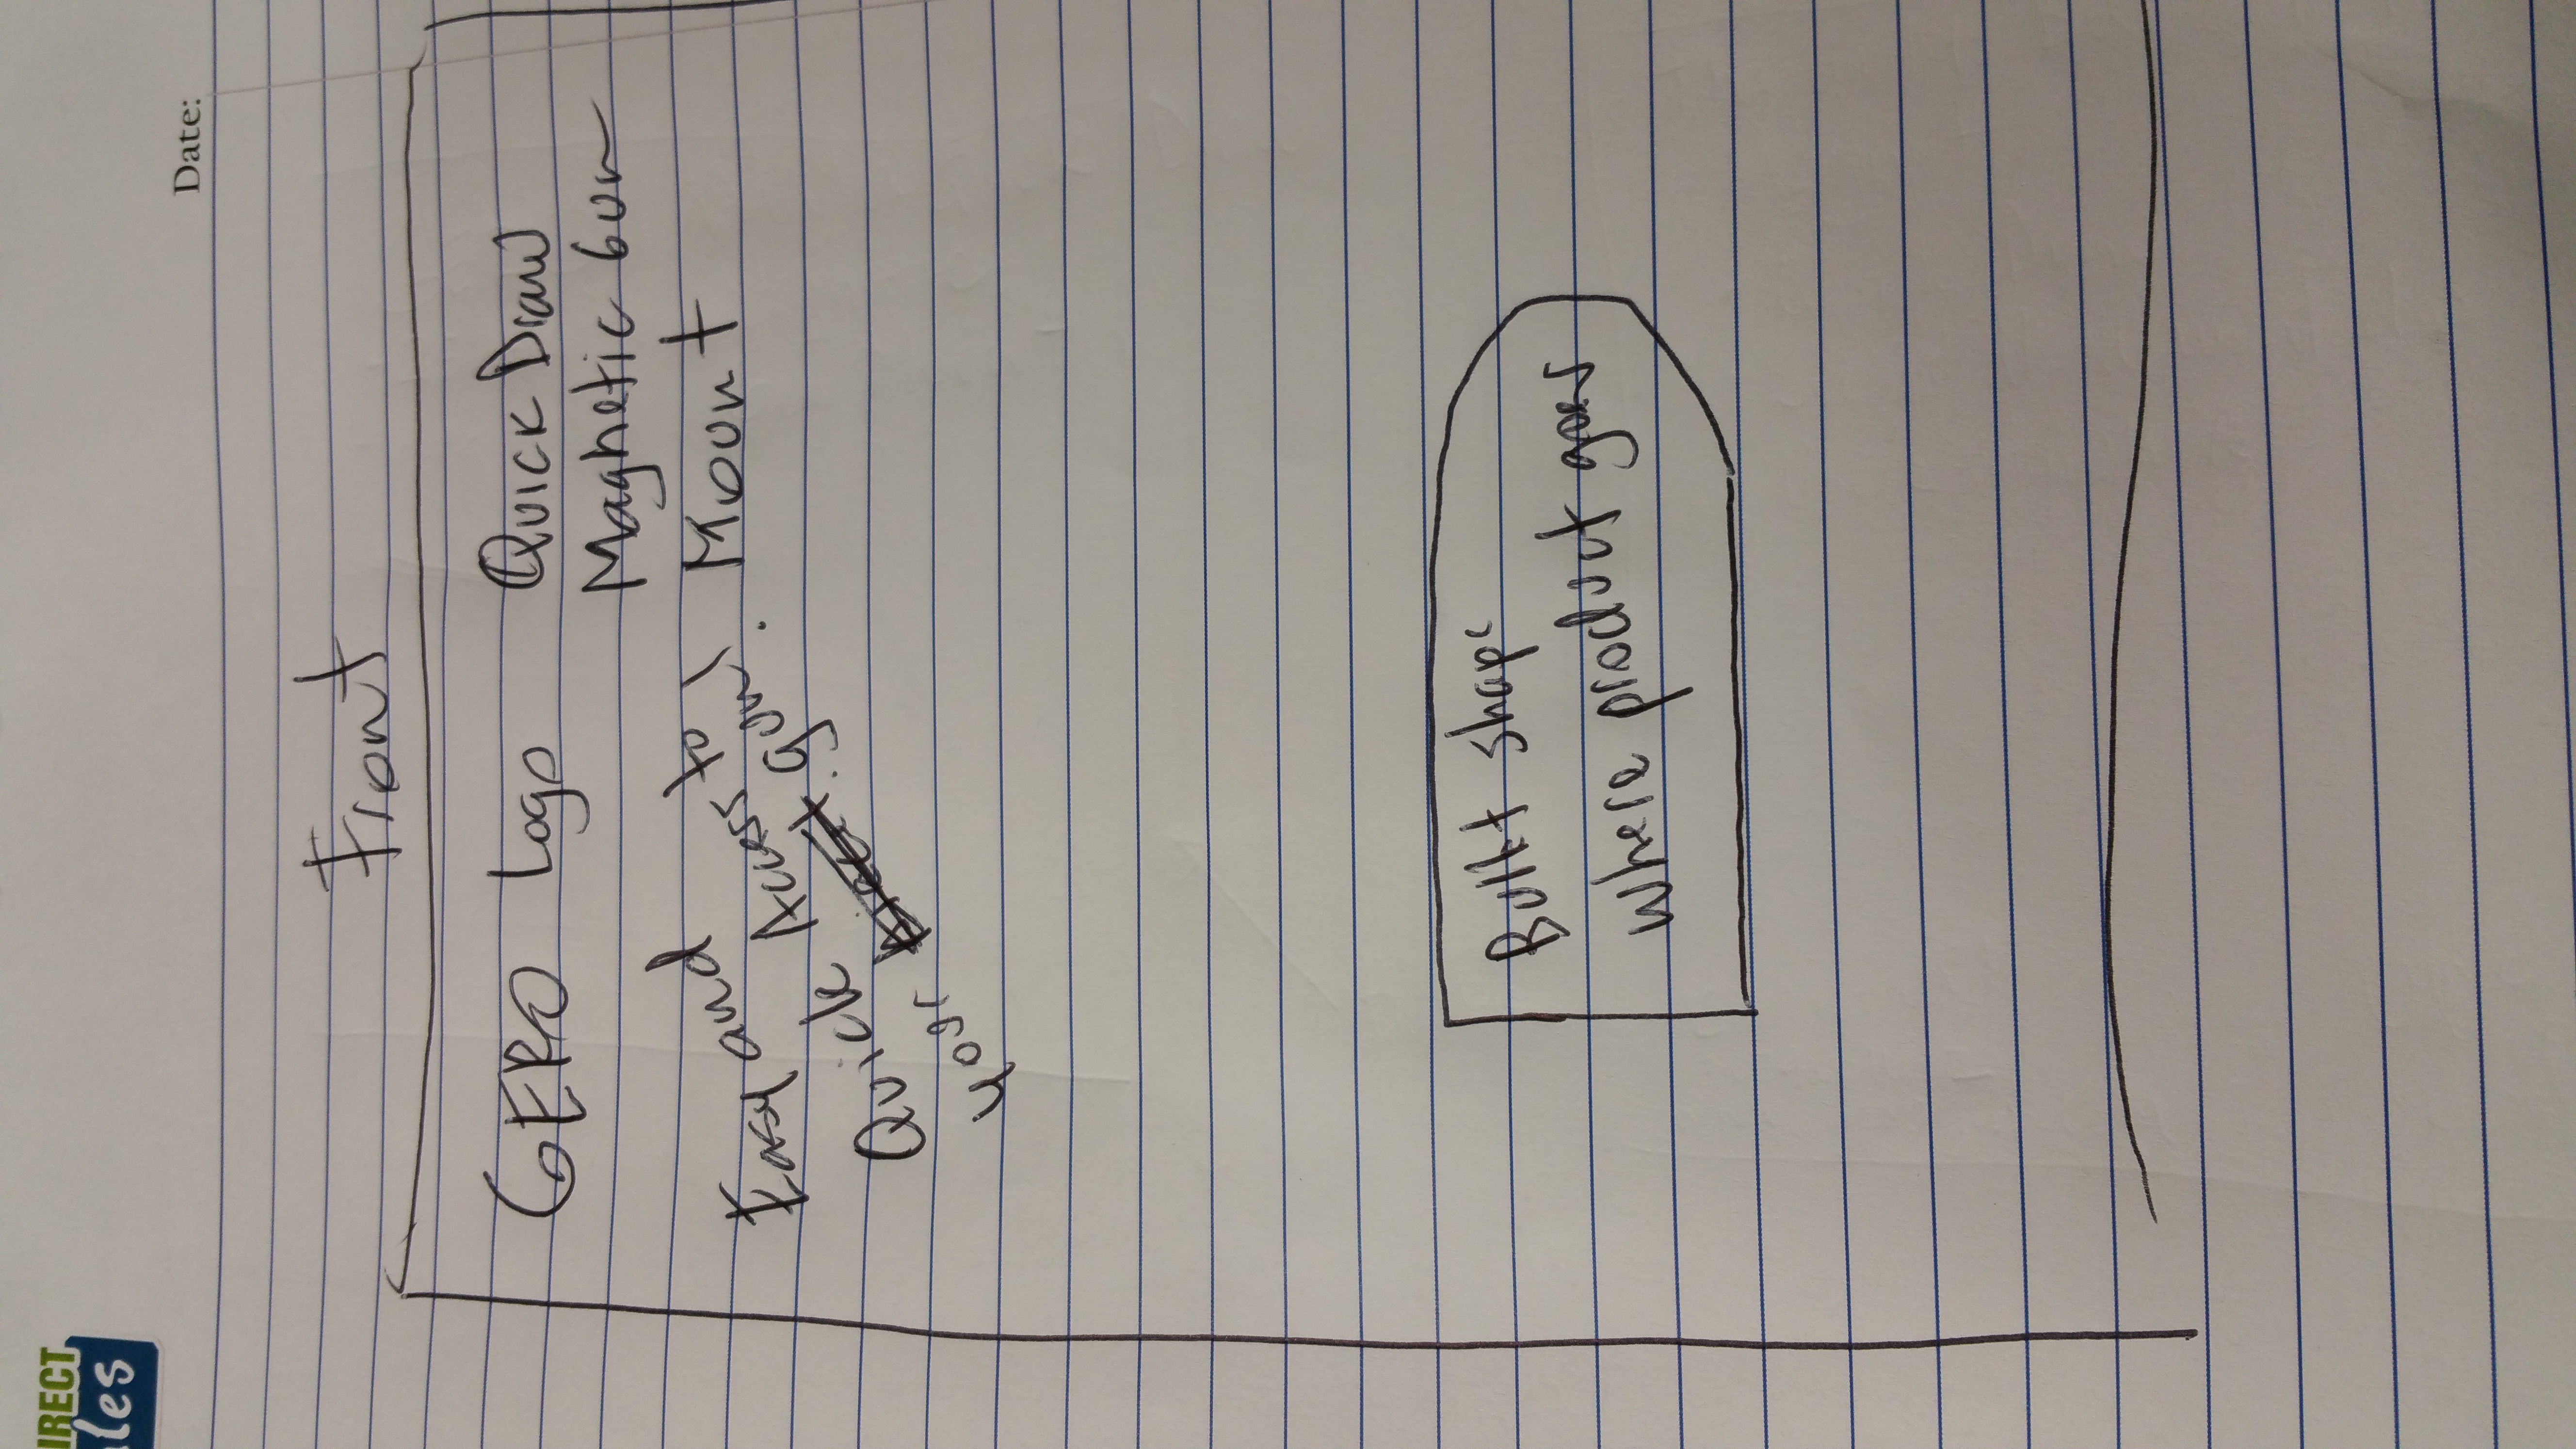 Date:
Front
GERO Logo
Quick Draw
Magnetic Gun
Mount
Easy and
Quick Access to
your gun.
Bullet shape
where product goes
IRECT
les